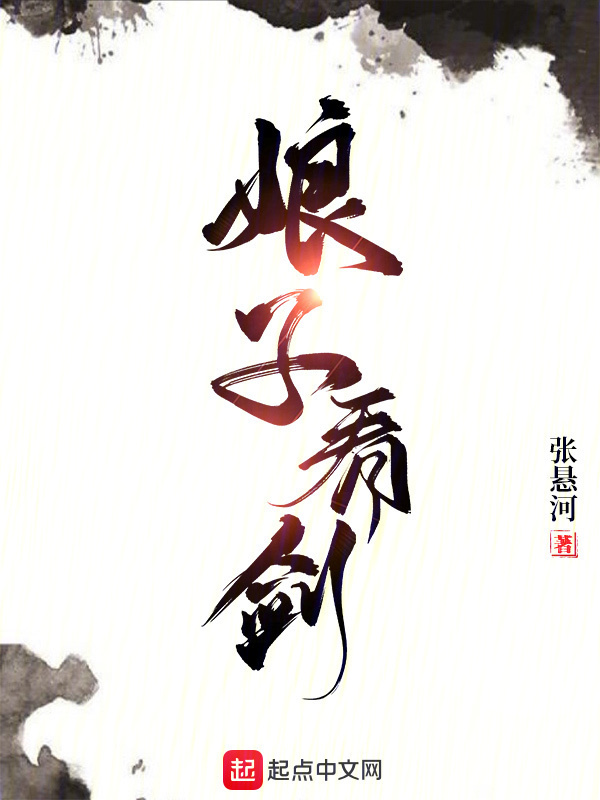 娘子看剑
张悬河
著
起 起点中文网